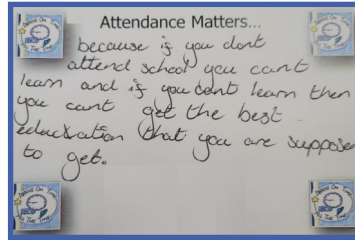 Attendance Matters...
because if you dont
attend school you cant
learn and if you dont learn then
you cant get the best
education that you are suppose
to get.